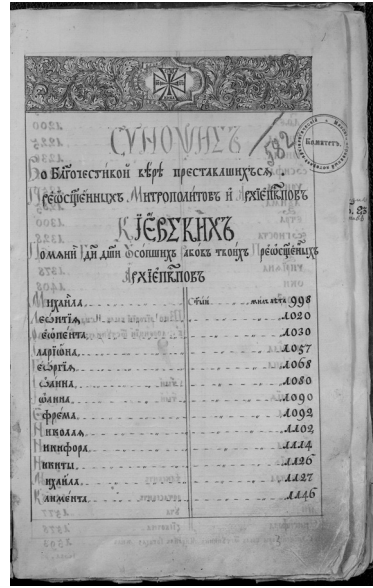 СУНОѰИСЪ
582
Комитетъ
о Бл҃гочестивой вѣрѣ преставлшихъся
Прео҃сщ҃енныхъ Митрополитов и Архїепк҃пов
КЇЕВСКИХЪ
Помѧни Гд҃и дш҃и Ѹсопших рабовъ твоихъ Прео҃сщ҃еныхъ
Архїепк҃пов
Михаила 998
Леѡнтїѧ 1020
Ѳеѡпемта 1030
Иларїѡна 1057
Геѡргїѧ 1068
Іѡанна 1080
Іѡанна 1090
Єфрема 1092
Николаѧ 1102
Никифора 1114
Никиты 1126
Михаила 1127
Климента 1146